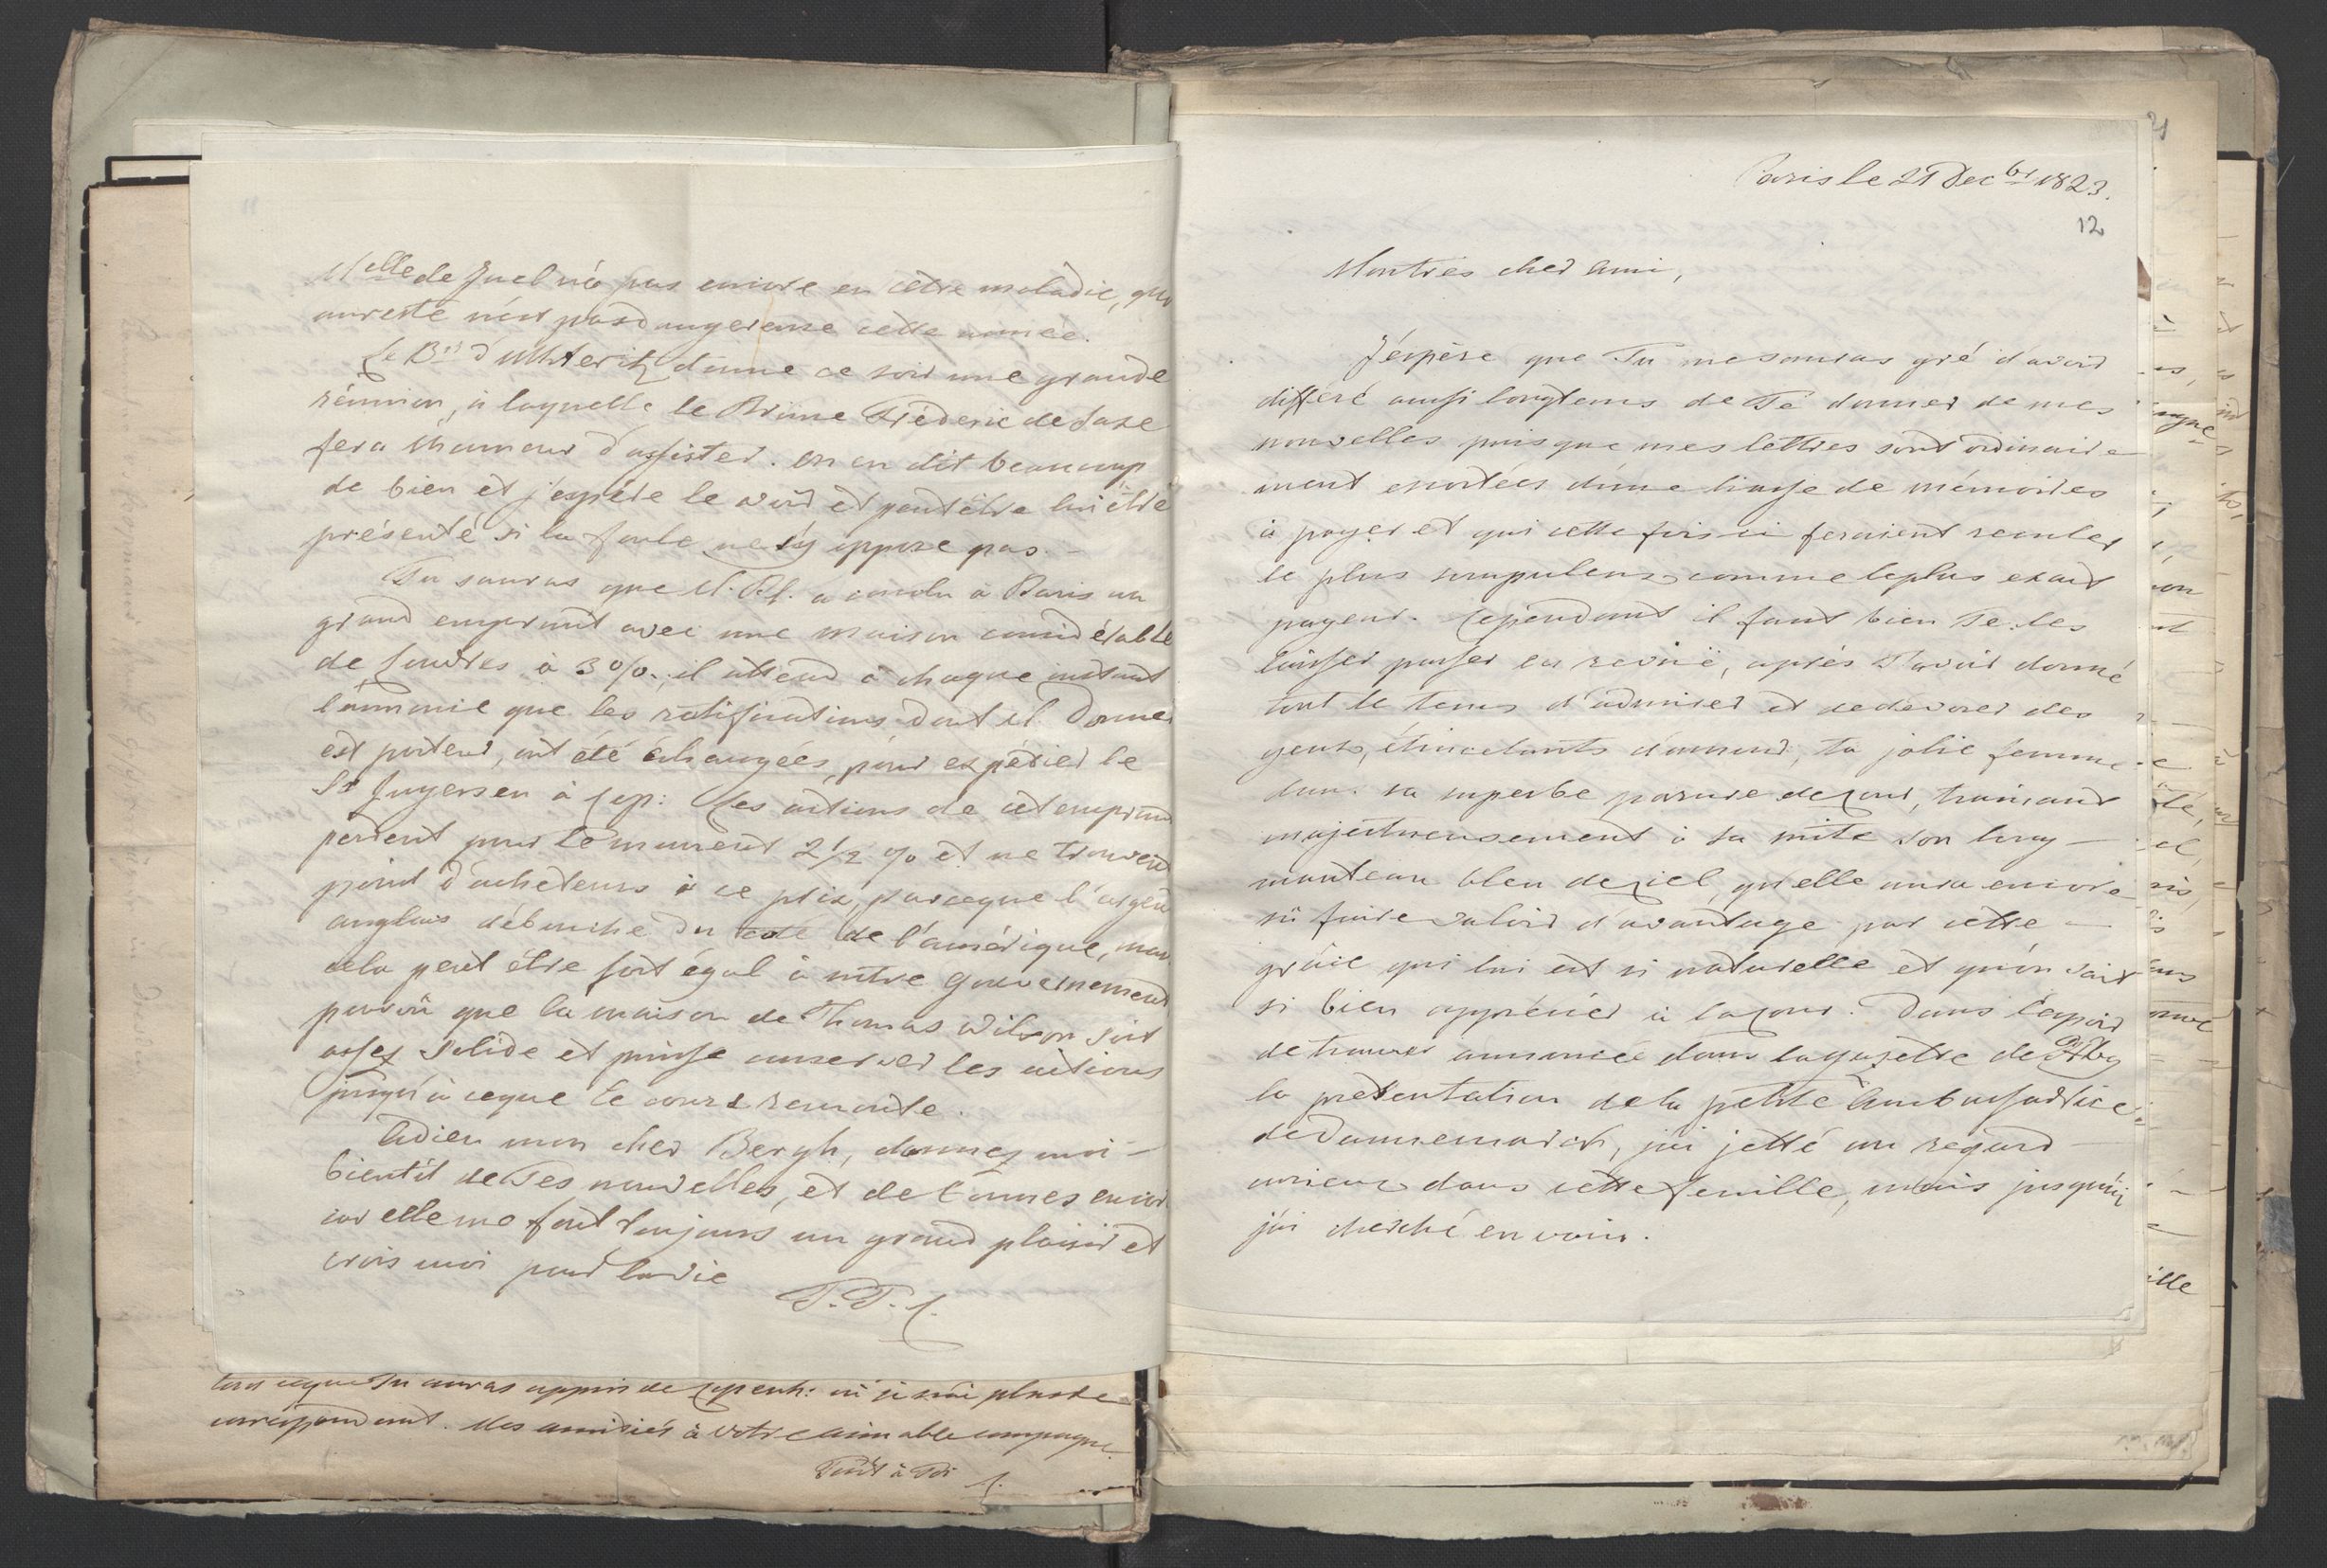 Melle de Juel n'a pas encore eu cette maladie, qui
aureste n'est pas dangereuse cette année.
Le Bn d'Uchteritz donne ce soir une grande
réunion, à laquelle le Prince Fréderic de Saxe
fera l'honneur d'assister. on en dit beaucoup
de bien et j'espère le voir et peutêtre lui être
présenté si la foule ne s'y oppose pas. -
Tu sauras que M. a conclu à Paris un
grand emprunt avec une maison considérable
de Londres à 3%. il attend à chaque instant
l'annonce que les ratifications dont M. Donner
est porteur, ont été échangées, pour expédier le
Sr Jugersen à Cop: Les actions de cet emprunt
perdent pour le moment 2½ % et ne trouvent
point d'acheteurs à ce prix, parceque l'argent
anglais débouche du coté de l'amérique, mais
cela peut être fort égal à notre Gouvernement
pourvû que la maison de Thomas Wilson soit
assez solide et puisse conserver les actions
jusqu'à ceque le cours remonte.
Adieu mon cher Bergh, donnez moi -
bientôt de Tes nouvelles, et de bonnes encore
car elle me font toujours un grand plaisir et
crois moi pour la vie
T. T. C.
tout ceque Tu auras appris de Copenh: où je n'ai plus de
correspondant. Mes amitiés à votre aimable compagne
Tout à Toi
Paris le 21 Decbr 1823.
12
Mon très cher ami,
J'éspère que Tu me sauras gré d'avoir
differé aussi longtems de Te donner de mes
nouvelles puisque mes lettres sont ordinaire
ment escortées d'une liasse de mémoires
à payer et qui cette fois ci feraient reculer
le plus scrupuleux comme le plus exact
payeur. Cependant il faut bien Te les
laisser passer en revuë, après T'avoir donné
tout le tems d'admirer et de dévorer des
yeux, étincelants d'amour, ta jolie femme
dans sa superbe parure de Cour, trainant
majestueusement à sa suite son long -
manteau bleu de Ciel, qu'elle aura encore
sû faire valoir d'avantage par cette -
grâce qui lui est si naturelle et qu'on sait
si bien apprécier à la Cour. Dans l'espoir
de trouver annoncée dans la gazette de Pbg
la présentation de la petite Ambassadrice
de Dannemarck, j'ai jetté un regard -
curieux dans cette feuille, mais jusqu'ici
j'ai cherché en vain.